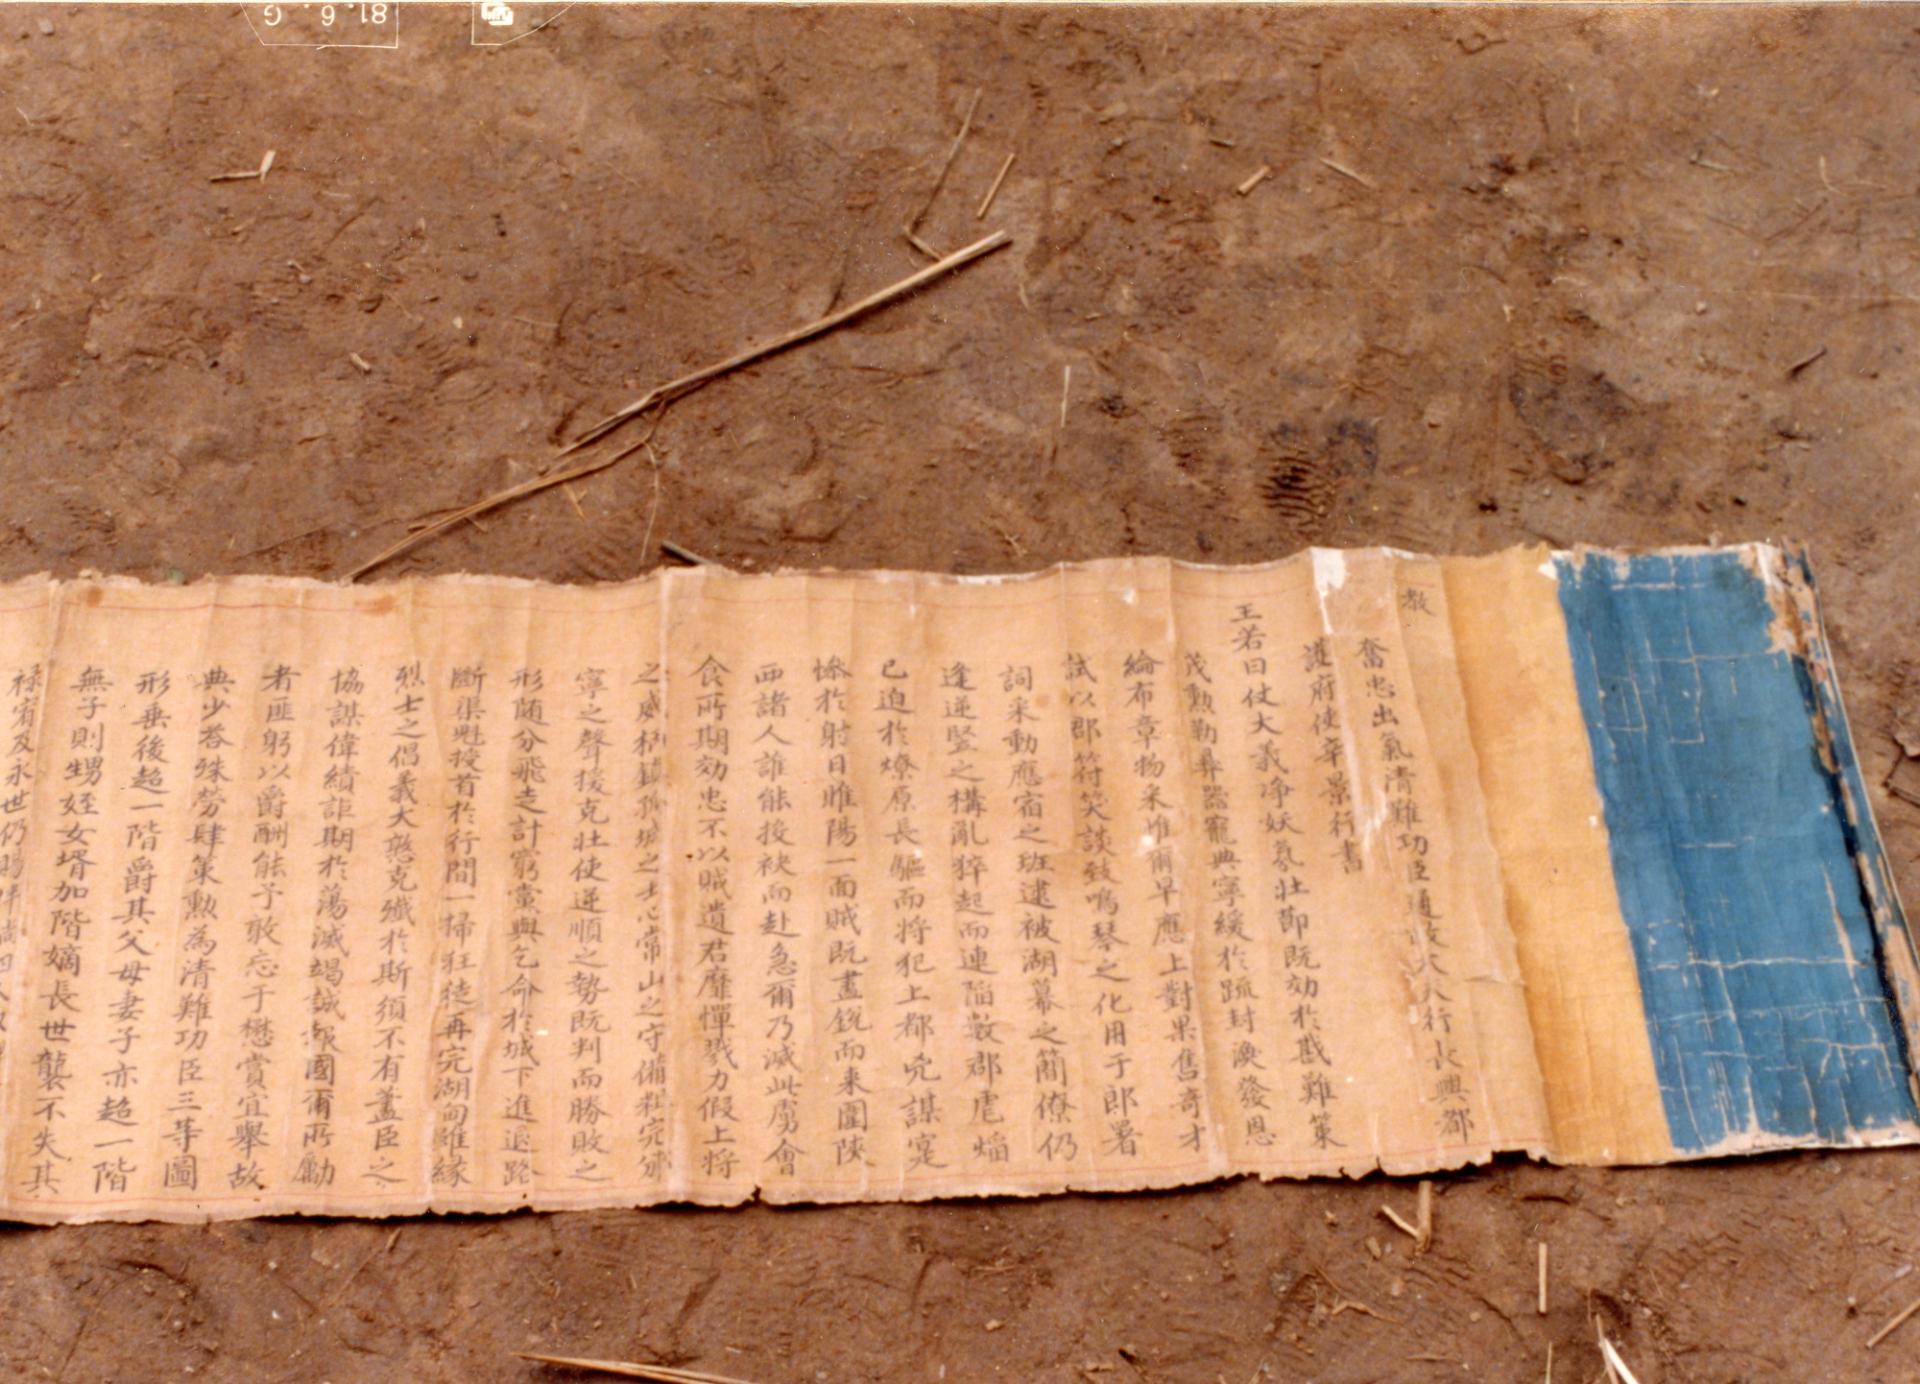 教
奮忠出氣清難功臣通政大夫行長興都
護府使辛景行書
王若曰仗大義淨妖氛壯節既効於戡難策
茂勲勒彛器寵典寧緩於疏封渙發恩
綸布章物采惟爾早應上對果舊奇才
試以郡符笑談致鳴琴之化用于郎署
詞采動應宿之班逮被湖幕之簡僚仍
逢逆竪之構亂猝起而連陷數郡虐焰
已迫於燎原長驅而將犯上都兇謀寔
慘於射日睢陽一面賊既盡銳而来圍陜
西諸人誰能投袂而赴急爾乃滅此虜會
食所期効忠不以賊遺君靡憚戮力假上將
之威稜鎮孤城之士心常山之守備粗完
寧之聲援克壮使逆順之勢既判而勝敗之
形随分飛走計窮黨與乞命於城下進退路
斷渠魁授首於行間一掃狂徒再完湖甸雖緣
烈士之倡義大憝克殲於斯須不有藎臣之
協謀偉績詎期於蕩滅竭誠報國爾所勵
者匪躬以爵酬能予敢忘于懋賞宜舉故
典少答殊勞肆策勲為清難功臣三等圖
形垂後超一階爵其父母妻子亦超一階
無子則甥姪女壻加階嫡長世襲不失其
禄宥及永世仍賜伴倘四人
81.6.G